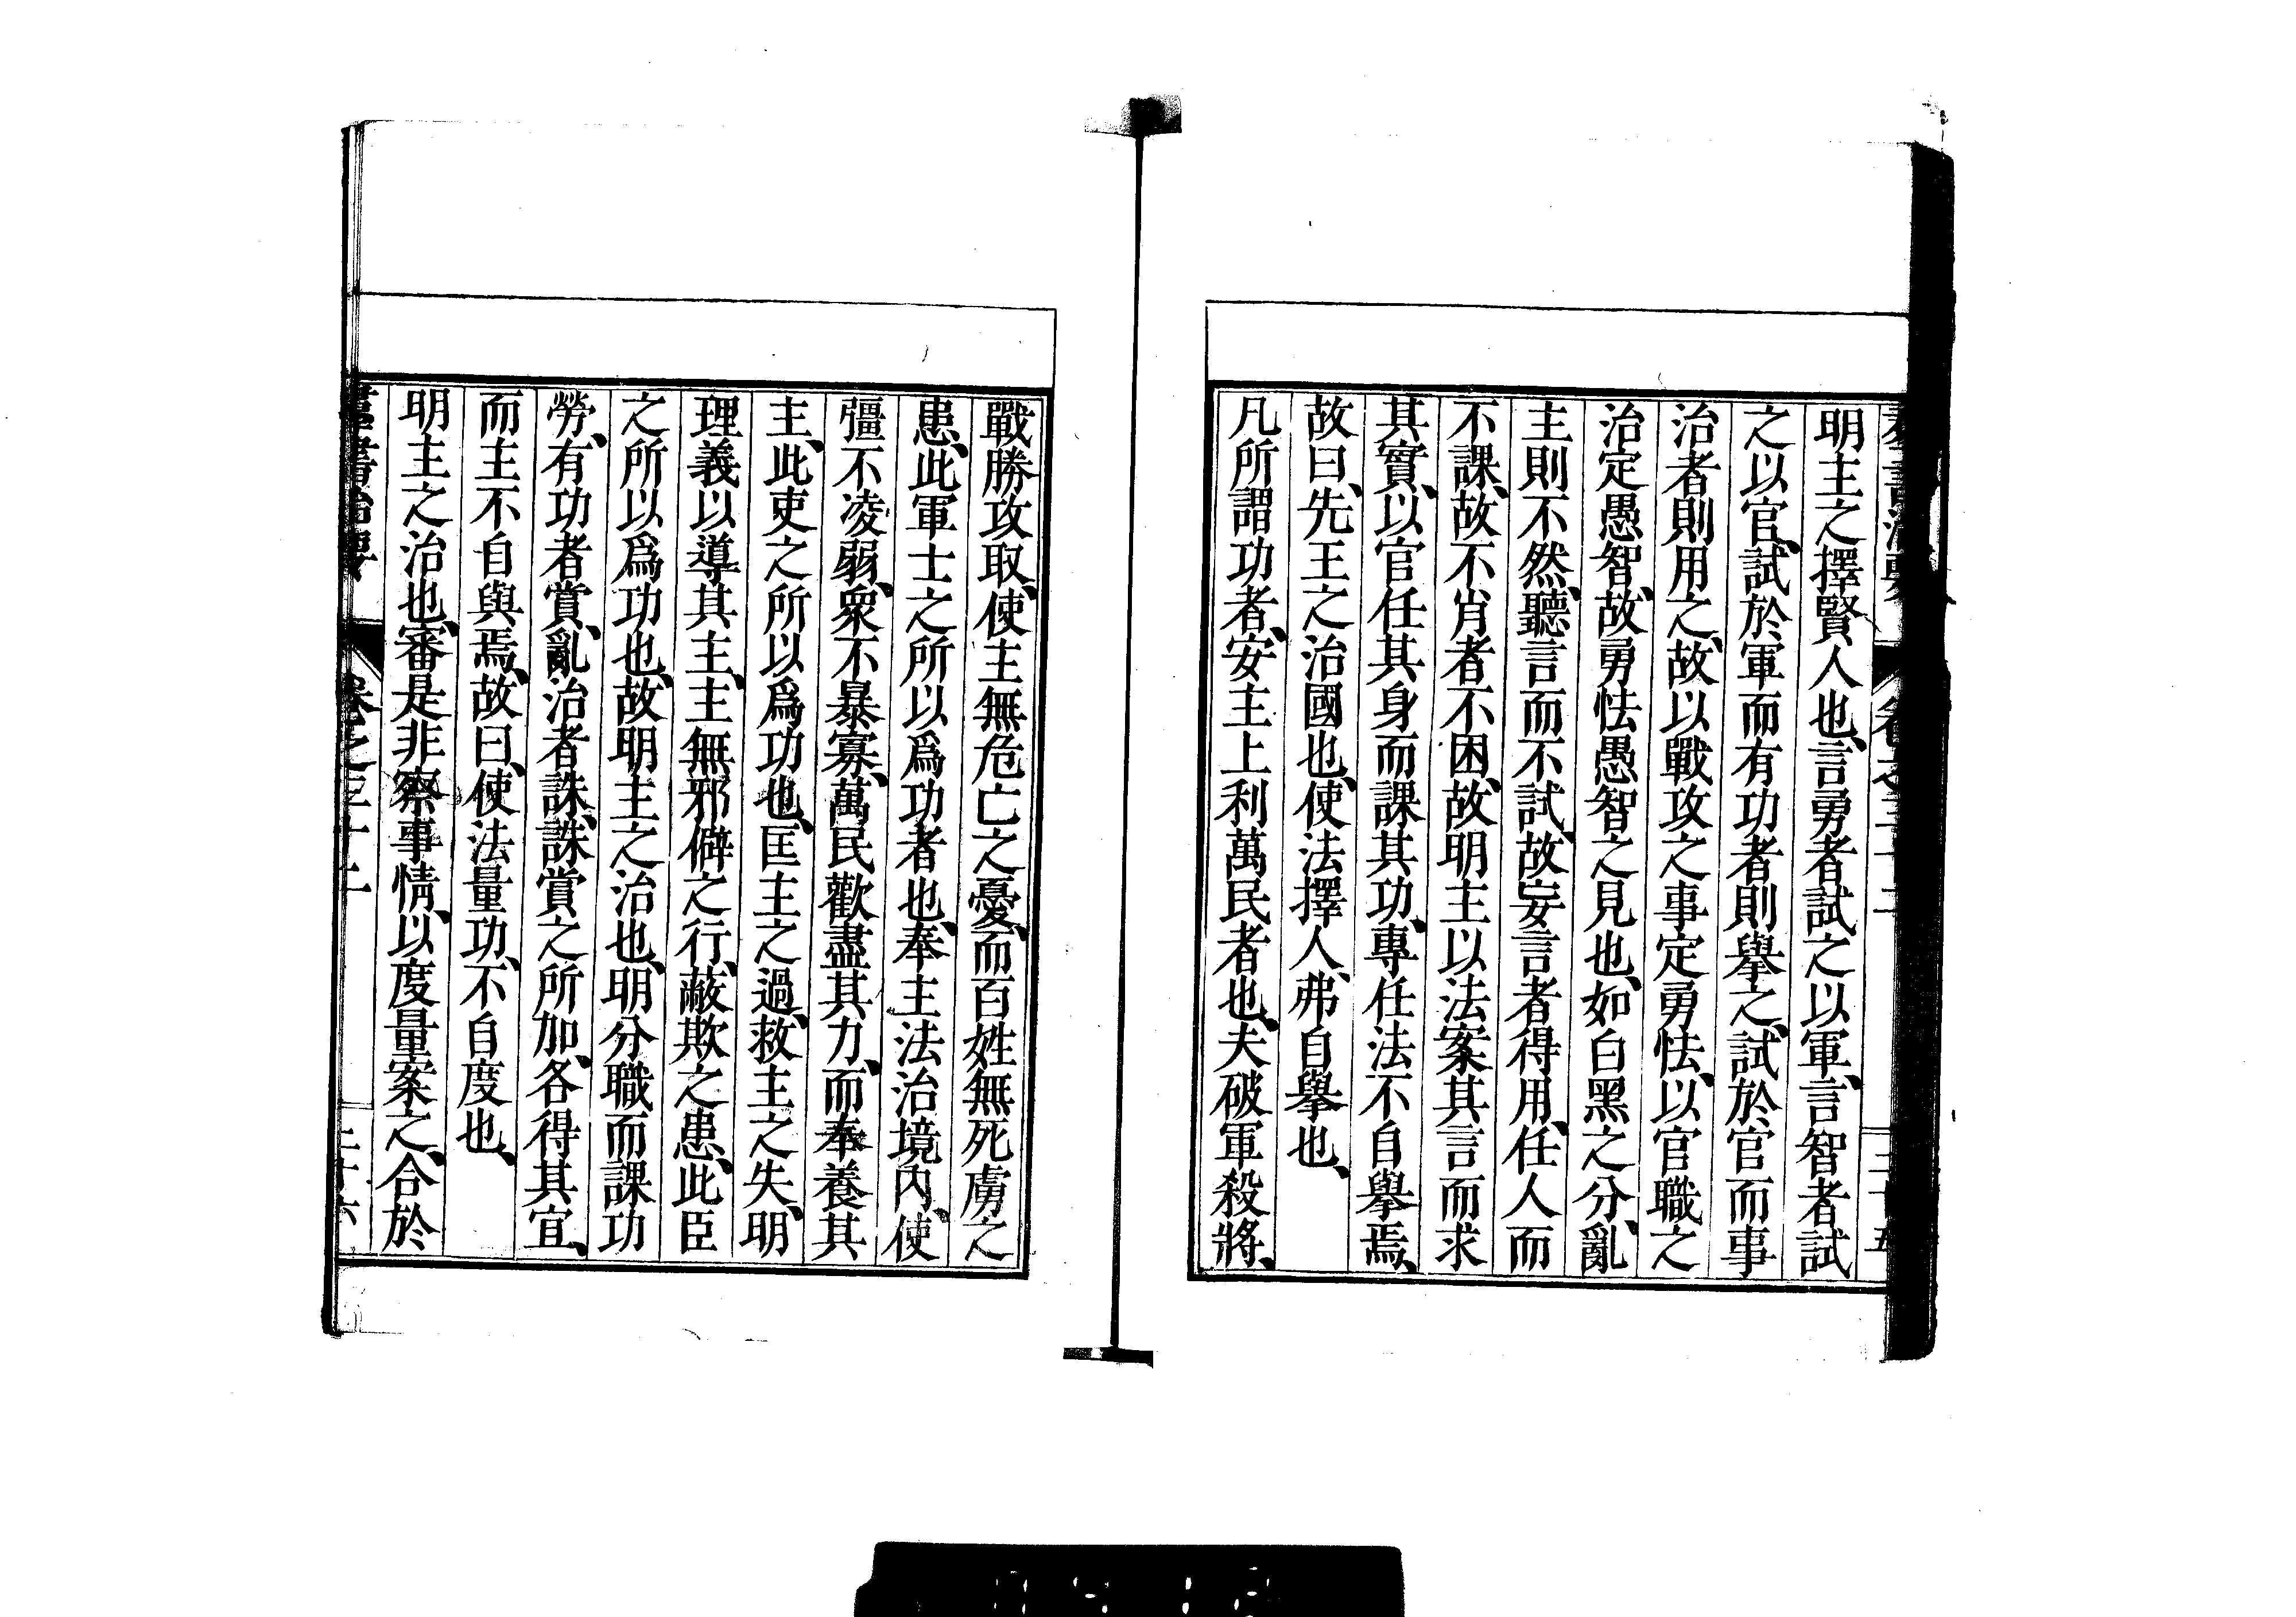 明主之擇賢人也、言勇者試之以軍、言智者試
之以官、試於軍而有功者則舉之、試於官而事
治者則用之、故以戰攻之事定勇怯、以官職之
治定愚智、故勇怯愚智之見也、如白黑之分、亂
主則不然、聽言而不試、故妄言者得用、任人而
不課、故不肖者不困、故明主以法案其言而求
其實、以官任其身而課其功、專任法不自舉焉、
故曰、先王之治國也、使法擇人、弗自舉也、
凡所謂功者、安主上利萬民者也、夫破軍殺將、
戰勝攻取、使主無危亡之憂、而百姓無死虜之
患、此軍士之所以爲功者也、奉主法治境內、使
彊不凌弱、衆不暴寡、萬民歡盡其力、而奉養其
主、此吏之所以爲功也、匡主之過、救主之失、明
理義以導其主、主無邪僻之行、蔽欺之患、此臣
之所以爲功也、故明主之治也、明分職而課功
勞、有功者賞、亂治者誅、誅賞之所加、各得其宜、
而主不自與焉、故曰、使法量功、不自度也、
明主之治也、審是非察事情、以度量案之、合於
羣書治要 卷之三十二 三十六